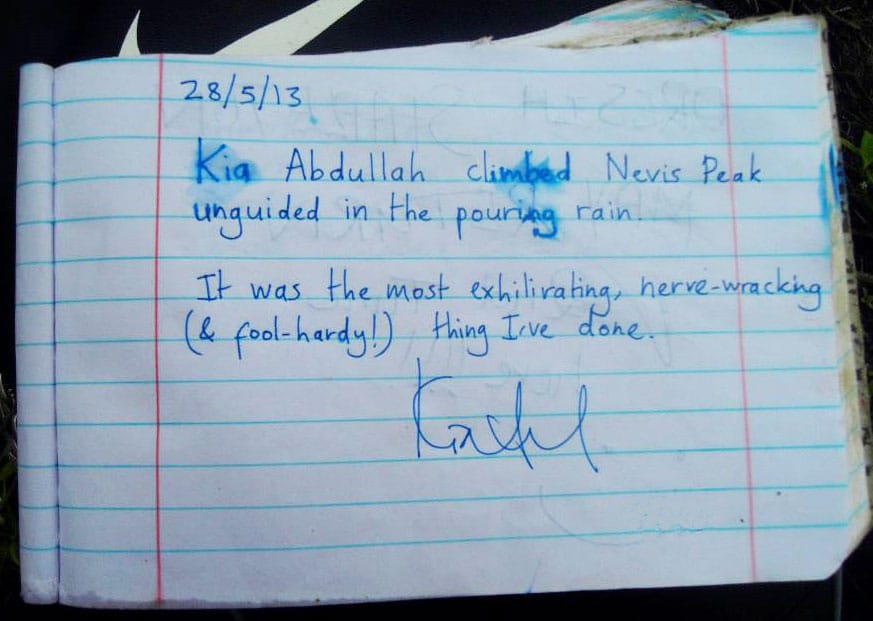 28/5/13
Kia Abdullah climbed Nevis Peak
unguided in the pouring rain.
It was the most exhilirating, nerve-wracking
(& fool-hardy!) thing I've done.